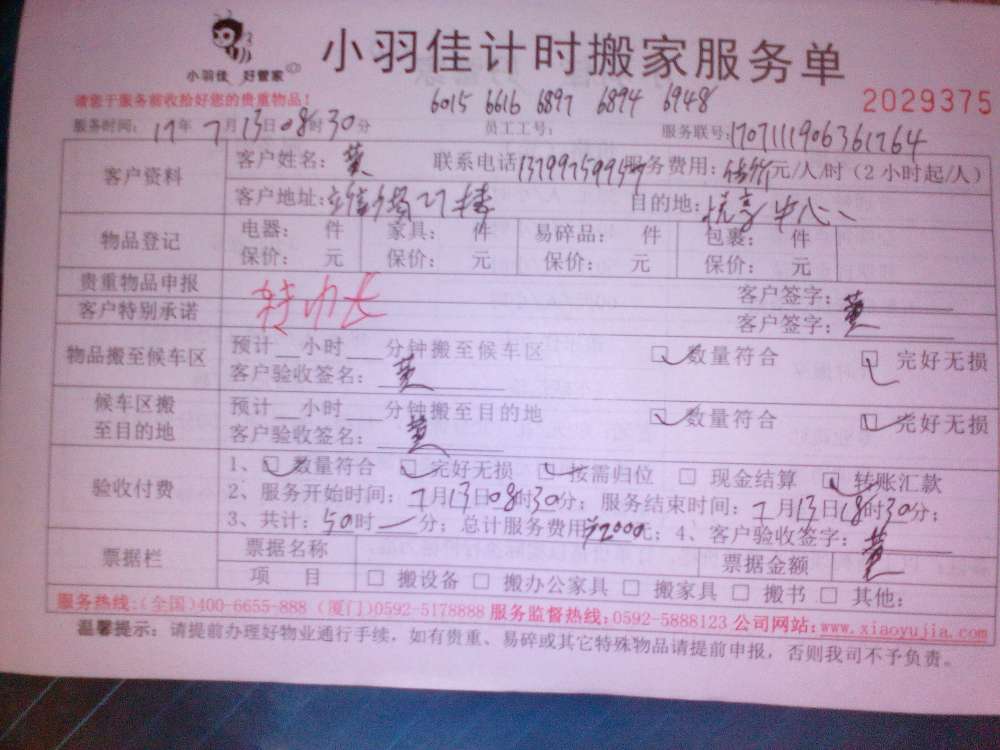 小羽佳 好管家
小羽佳计时搬家服务单
请您于服务前收拾好您的贵重物品！
6015 6616 6897 6894 6948
2029375
服务时间：17年7月13日08时30分 员工工号： 服务联号：
客户资料 客户姓名：黄 联系电话 服务费用： 元/人/时（2小时起/人）
客户地址： 27楼 目的地： 中心
物品登记 电器： 件 家具： 件 易碎品： 件 包裹： 件
保价： 元 保价： 元 保价： 元 保价： 元
贵重物品申报 客户签字：黄
客户特别承诺 客户签字：黄
物品搬至候车区 预计__小时___分钟搬至候车区 ☑数量符合 ☑完好无损
客户验收签名：黄
候车区搬至目的地 预计__小时___分钟搬至目的地 ☑数量符合 ☑完好无损
客户验收签名：黄
验收付费 1、☑数量符合 ☑完好无损 ☑按需归位 □ 现金结算 ☑转账汇款
2、服务开始时间：7月13日08时30分；服务结束时间：7月13日18时30分；
3、共计：50时—分；总计服务费用¥2000元；4、客户验收签字：黄
票据栏 票据名称 票据金额
项 目 □ 搬设备 □ 搬办公家具 □ 搬家具 □ 搬书 □ 其他：
服务热线：（全国）400-6655-888（厦门）0592-5178888 服务监督热线：0592-5888123 公司网站：www.xiaoyujia.com
温馨提示：请提前办理好物业通行手续，如有贵重、易碎或其它特殊物品请提前申报，否则我司不予负责。